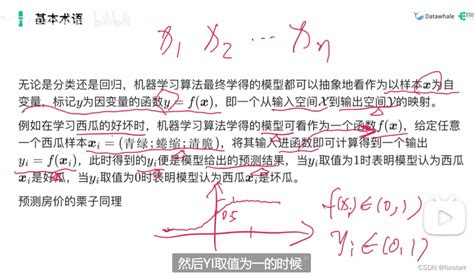 基本术语
bilibili
Datawhale
x₁ x₂ … xₙ
无论是分类还是回归，机器学习算法最终学得的模型都可以抽象地看作为以样本x为自
变量，标记y为因变量的函数y = f(x)，即一个从输入空间X到输出空间Y的映射。
例如在学习西瓜的好坏时，机器学习算法学得的模型可看作为一个函数f(x)，给定任意
一个西瓜样本xᵢ = (青绿; 蜷缩; 清脆)，将其输入进函数即可计算得到一个输出
yᵢ = f(xᵢ)，此时得到的yᵢ便是模型给出的预测结果，当yᵢ取值为1时表明模型认为西瓜
xᵢ是好瓜，当yᵢ取值为0时表明模型认为西瓜xᵢ是坏瓜。
预测房价的栗子同理
0.5
f(xᵢ)∈(0,1)
yᵢ∈(0,1)
然后YI取值为一的时候